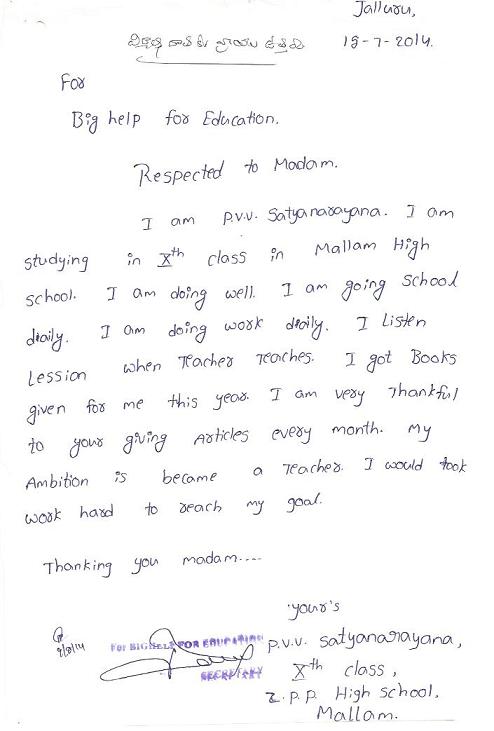 Jalluru,
19-7-2014.
For
Big help for Education.
Respected to Madam.
I am P.V.V. Satyanarayana. I am
studying in Xth class in Mallam High
school. I am doing well. I am going School
diaily. I am doing work diaily. I Listen
Lession when Teacher Teaches. I got Books
given for me this year. I am very Thankful
to your giving Articles every month. My
Ambition is became a Teacher. I would took
work hard to reach my goal.
Thanking you madam....
your's
P.V.V. Satyanarayana,
Xth class,
Z.P.P. High school,
Mallam.
For BIGHELP FOR EDUCATION
SECRETARY
2/8/14